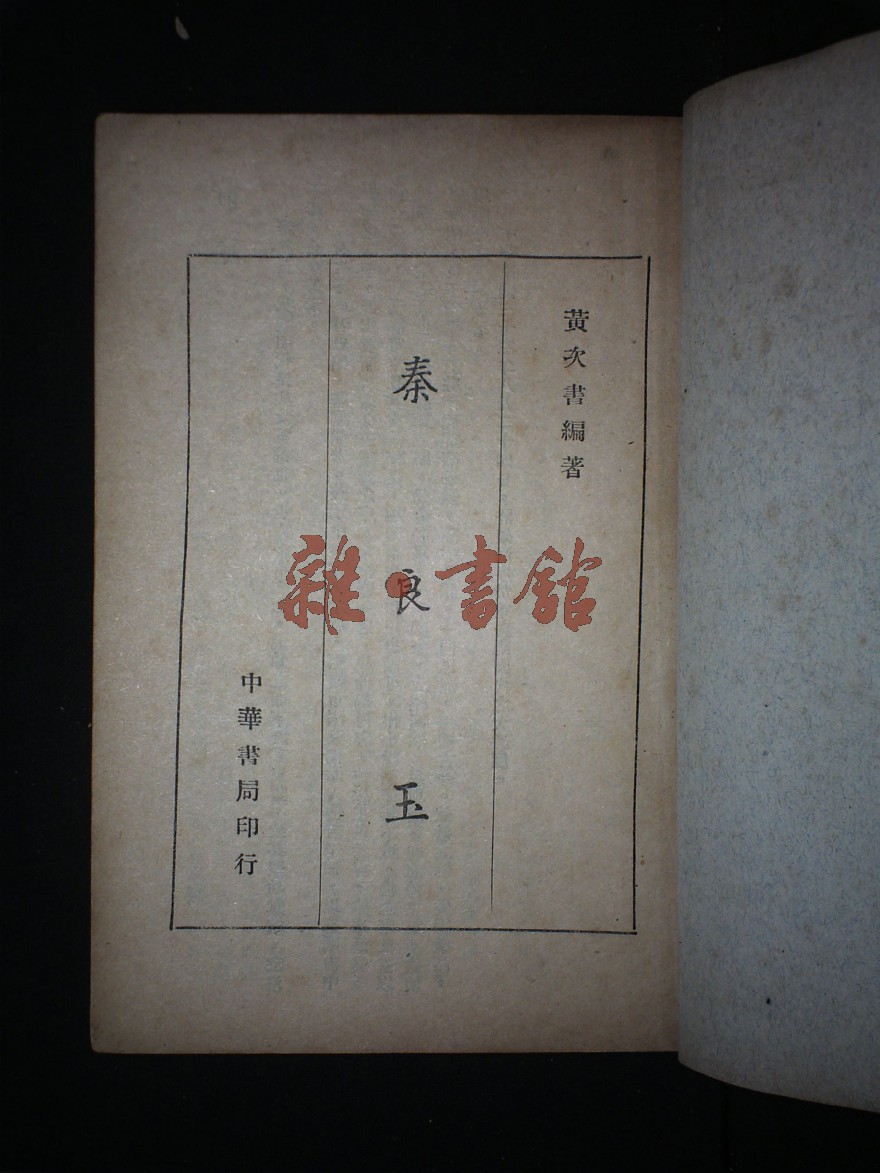 黃次書編著
秦良玉
中華書局印行
雜·書館